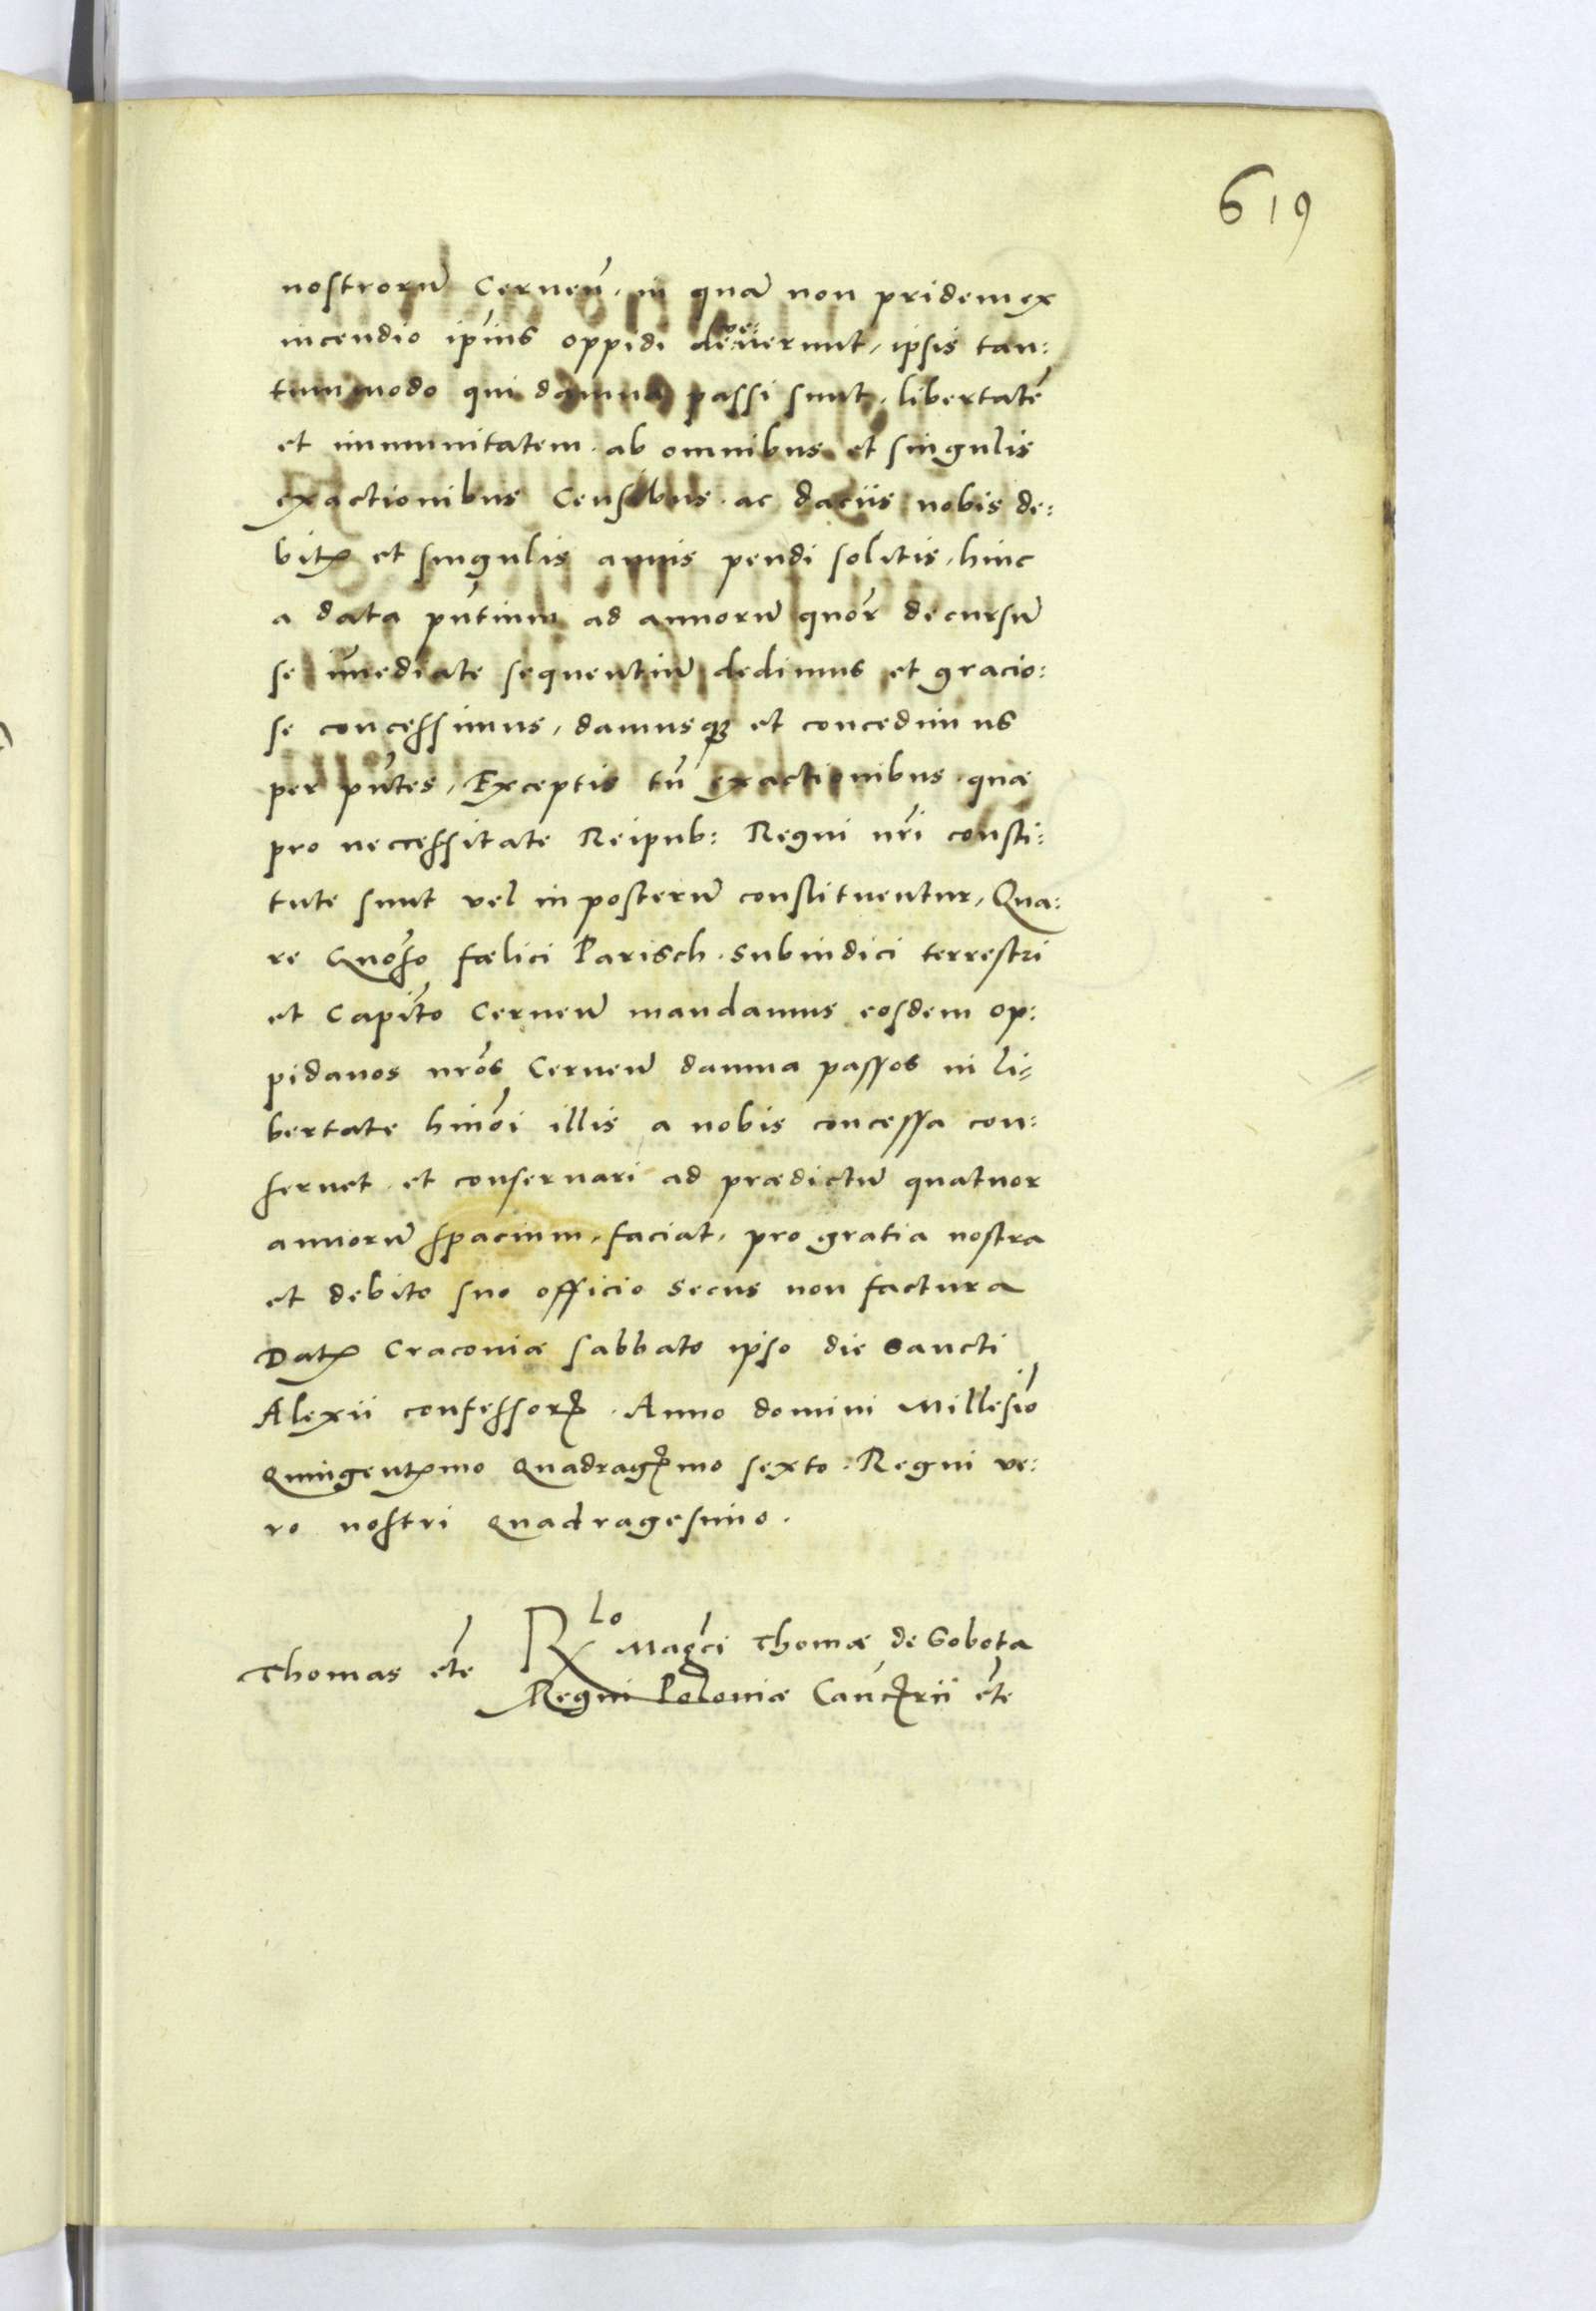 619
nostrorũ Cerneñ. in quã non pridem ex
incendio ip̃ius oppidi deuenerunt, ipsis tan:
tummodo qui damna passi sunt, libertatẽ
et immunitatem. ab omnibus et singulis
exactionibus Censibus. ac daciis nobis de:
bitꝭ et singulis annis pendi solitis, hinc
a data pñtium ad annorũ quor̃ decursũ
se im̃ediate sequentiũ dedimus et gracio:
se concessimus, damusqꝫ et concedimus
per pñtes, Exceptis tñ exactionibus. quæ
pro neccessitate Reipub: Regni nr̃i consti:
tute sunt vel in posterũ constituentur, Qua:
re Gnoso fælici Parisch. Subiudici terrestri
et Capit̃o Cerneñ mandamus eosdem op:
pidanos nrõs Cerneñ damna passos in li:
bertate hmõi illis a nobis concessa con:
seruet. et conseruari ad prædictũ quatuor
annorũ spacium, faciat, pro gratia nostra
et debito suo officio Secus non factura
Datꝭ Cracouiæ sabbato ipso die Sancti
Alexii confessorꝭ. Anno domini Millesĩo
Quingentꝭmo Quadragꝭmo sexto. Regni ve:
ro nostri Quadragesimo.
Thomas etc̃
Rlo Magc̃i Thomæ de Sobota
Regni Poloniæ Canc̃rii etc̃